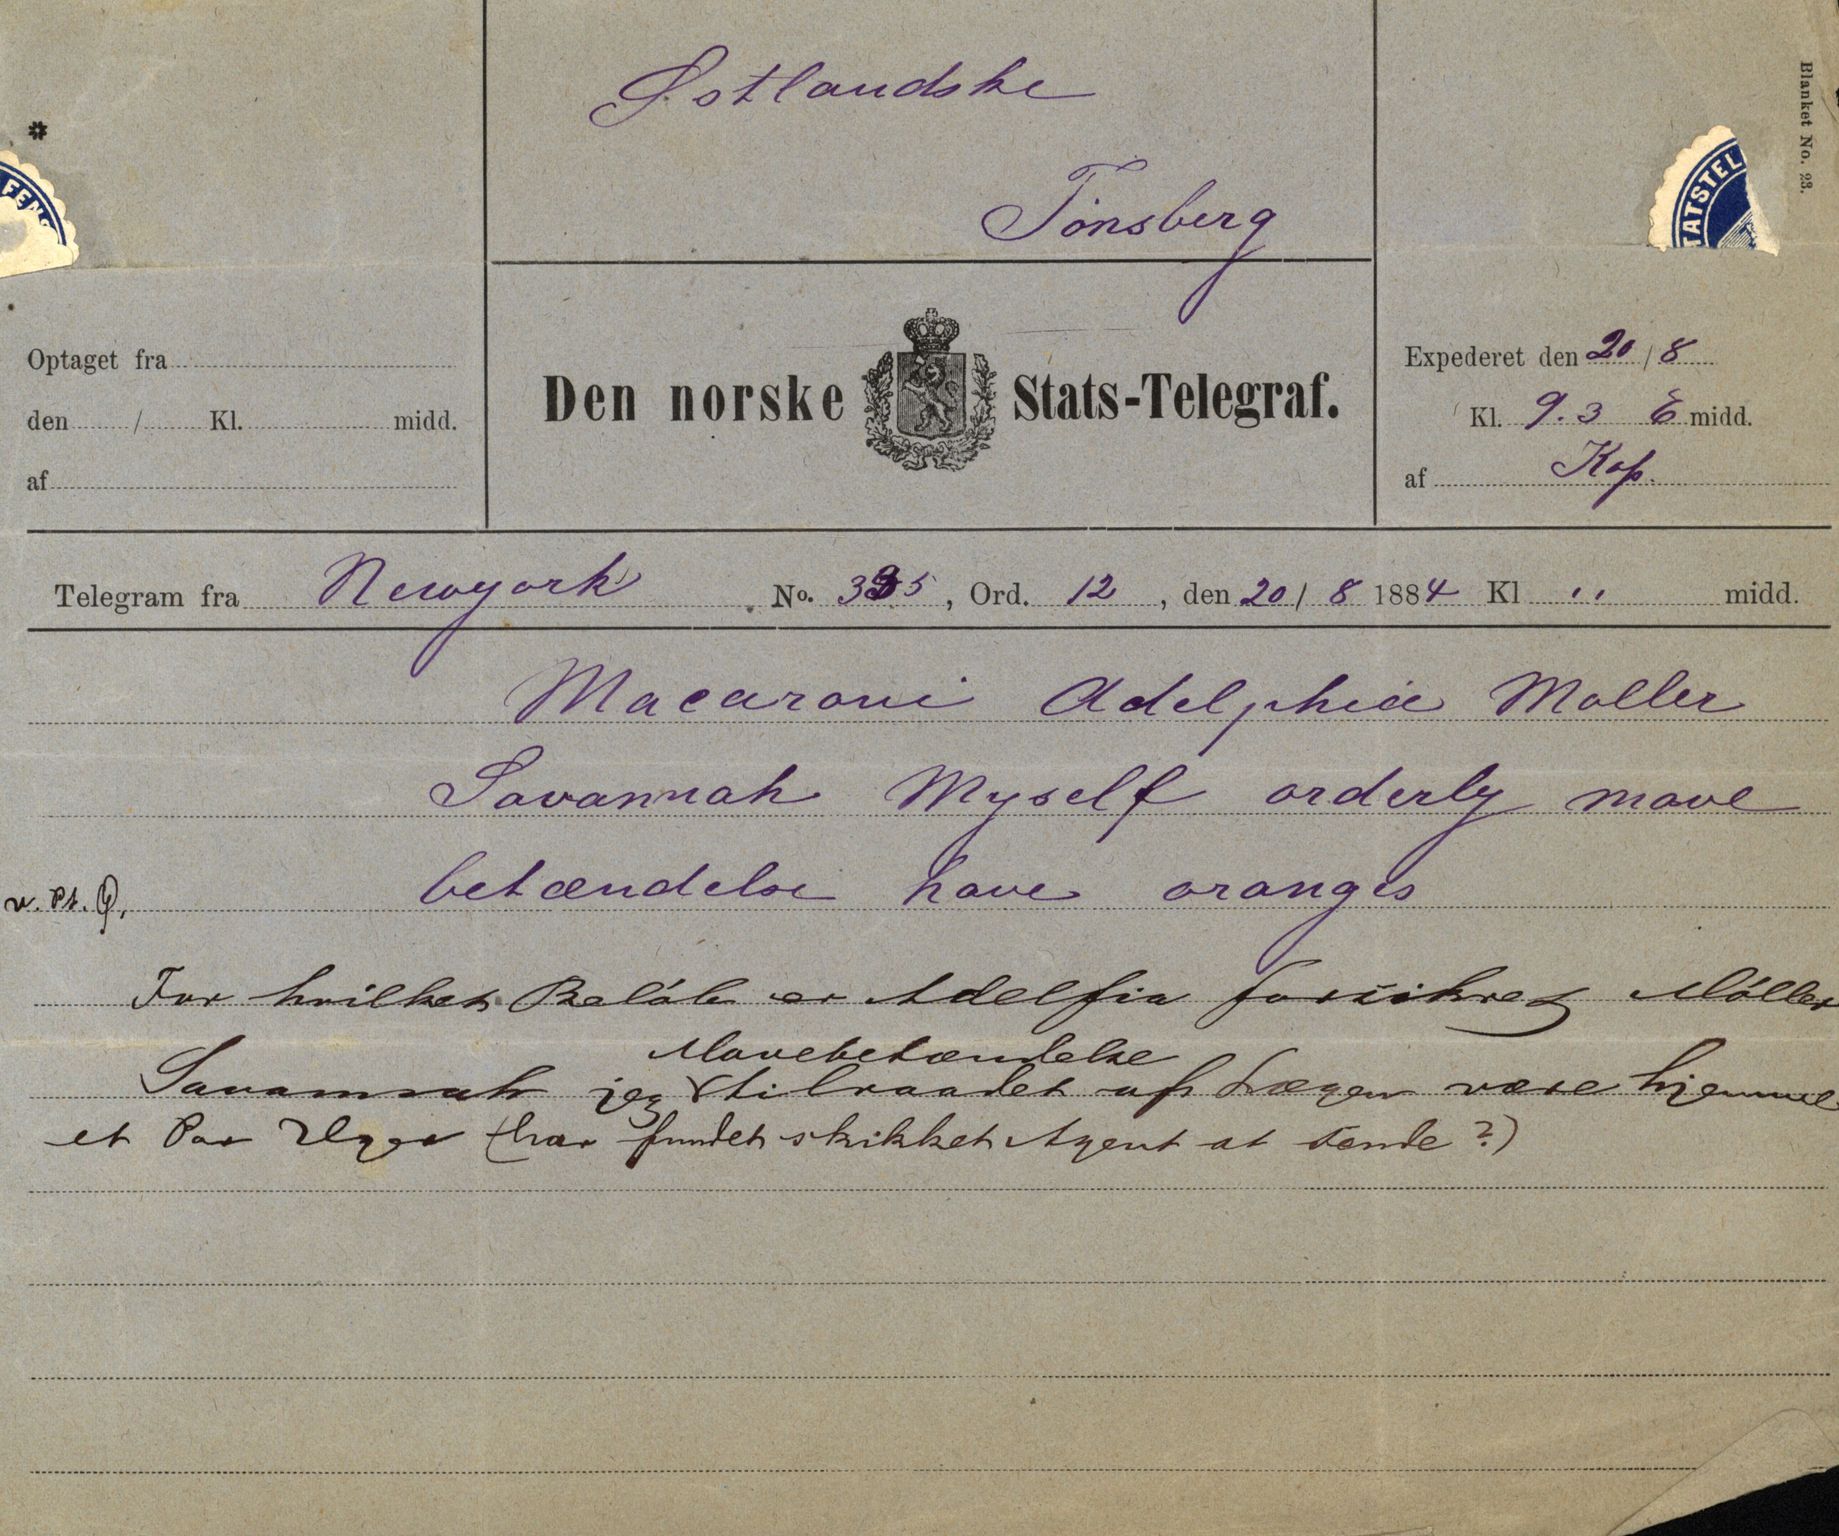 Østlandske
Tönsberg
Blanket No. 23.
*
FENS
TATSTEL
Optaget fra
den / Kl. midd.
af
Den norske Stats-Telegraf.
Expederet den 20/8
Kl. 9.3 E midd.
af Kap.
Telegram fra Newyork No. 335, Ord. 12, den 20/8 1884 Kl .. midd.
Macaroni Adelphia Moller
Savannah Myself orderly mave
betændelse have oranges
v. Pt. Q.
For hvilket Beløb er Adelfia forsikret Möller
Mavebetændelse
Savannah jeg tilraadet af Lægen være hjemme
et Par Uger (har fundet skikket Agent at sende?)